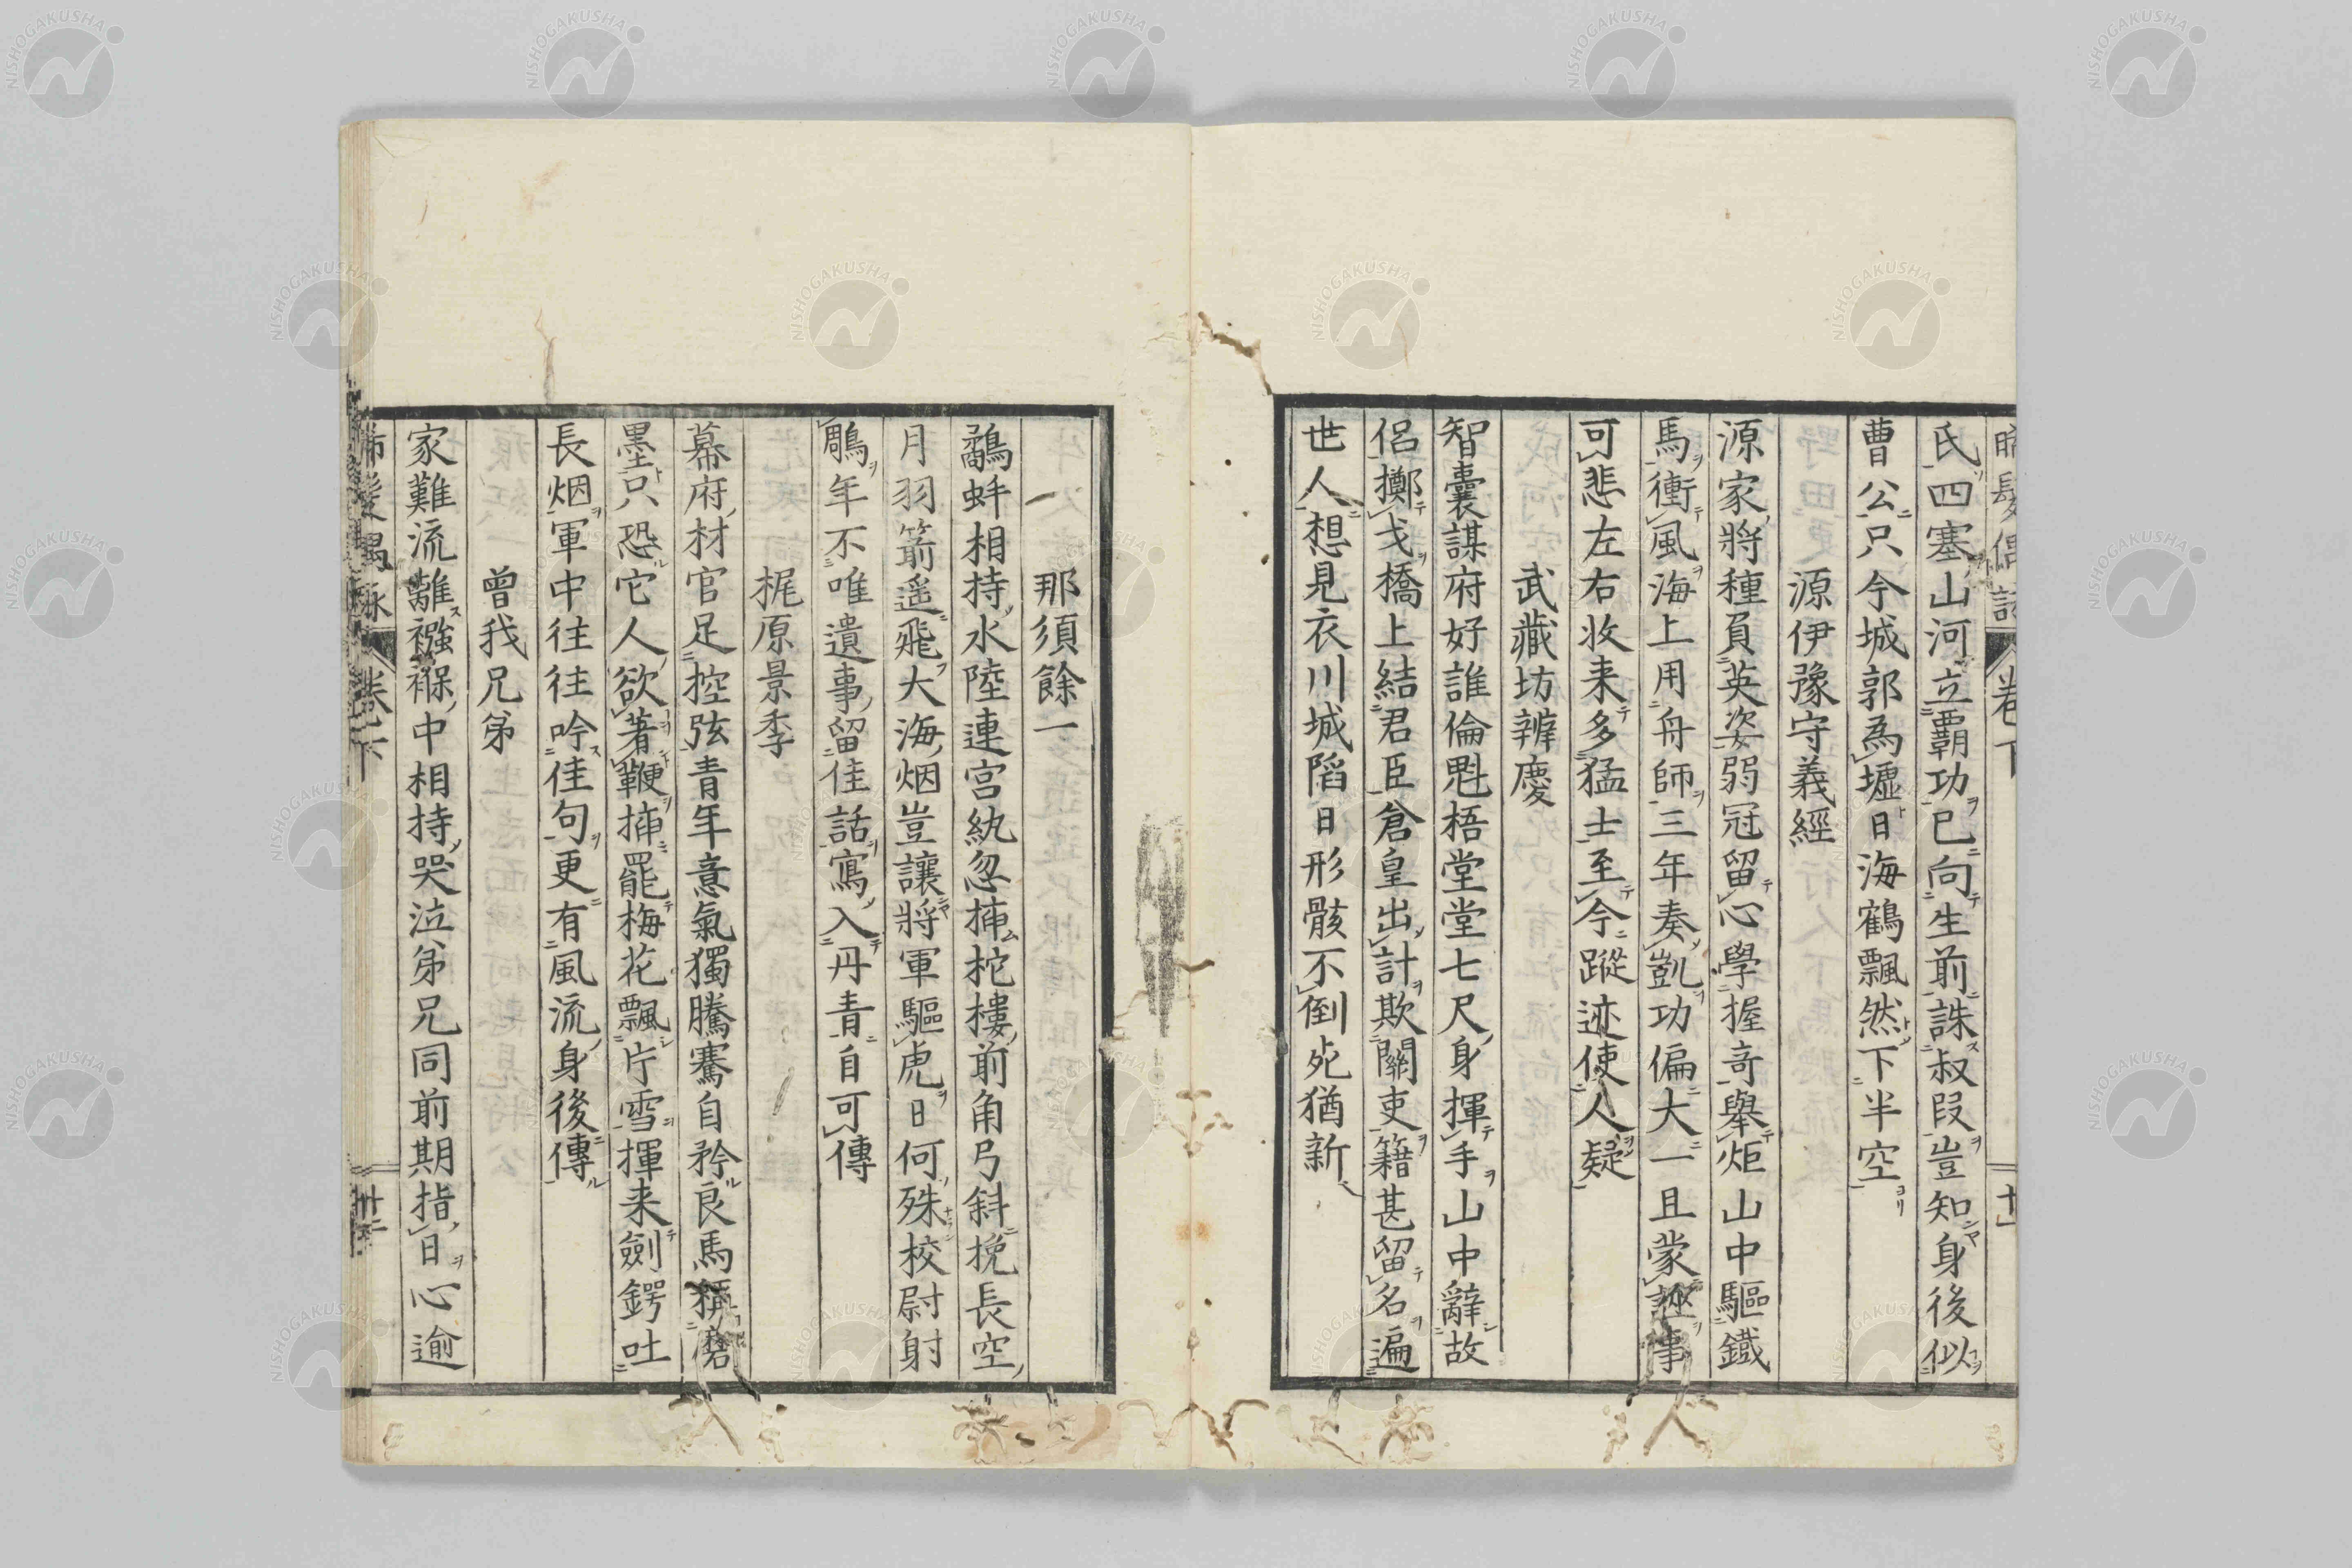 氏四塞山河立霸功已向生前誅叔段豈知身後似
曹公只今城郭為墟日海鶴飄然下半空
源伊豫守義經
源家將種員英姿弱冠留心學握奇舉炬山中驅鐵
馬衝風海上用舟師三年奏凱功偏大一且蒙誣事
可悲左右收来多猛士至今蹤迹使人疑
武藏坊辨慶
智囊謀府好誰倫魁梧堂堂七尺身揮手山中辭故
侶擲戈橋上結君臣倉皇出計欺關吏籍甚留名遍
世人想見衣川城陷日形骸不倒死猶新
那須餘一
鷸蚌相持水陸連宫紈忽揷柁樓前角弓斜挽長空
月羽箭遥飛大海烟豈讓將軍驅虎日何殊校尉射
鵰年不唯遺事留佳話寫入丹青自可傳
梶原景季
幕府材官足控弦青年意氣獨騰騫自矜良馬稱磨
墨只恐它人欲著鞭揷罷梅花飄片雪揮来劍鍔吐
長烟軍中往往吟佳句更有風流身後傳
曾我兄弟
家難流離襁褓中相持哭泣弟兄同前期指日心逾
晞髮偶詠 卷下 十二